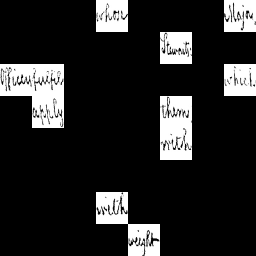 whom Major
Stewart's
Officers which
apply them
with
with
weight